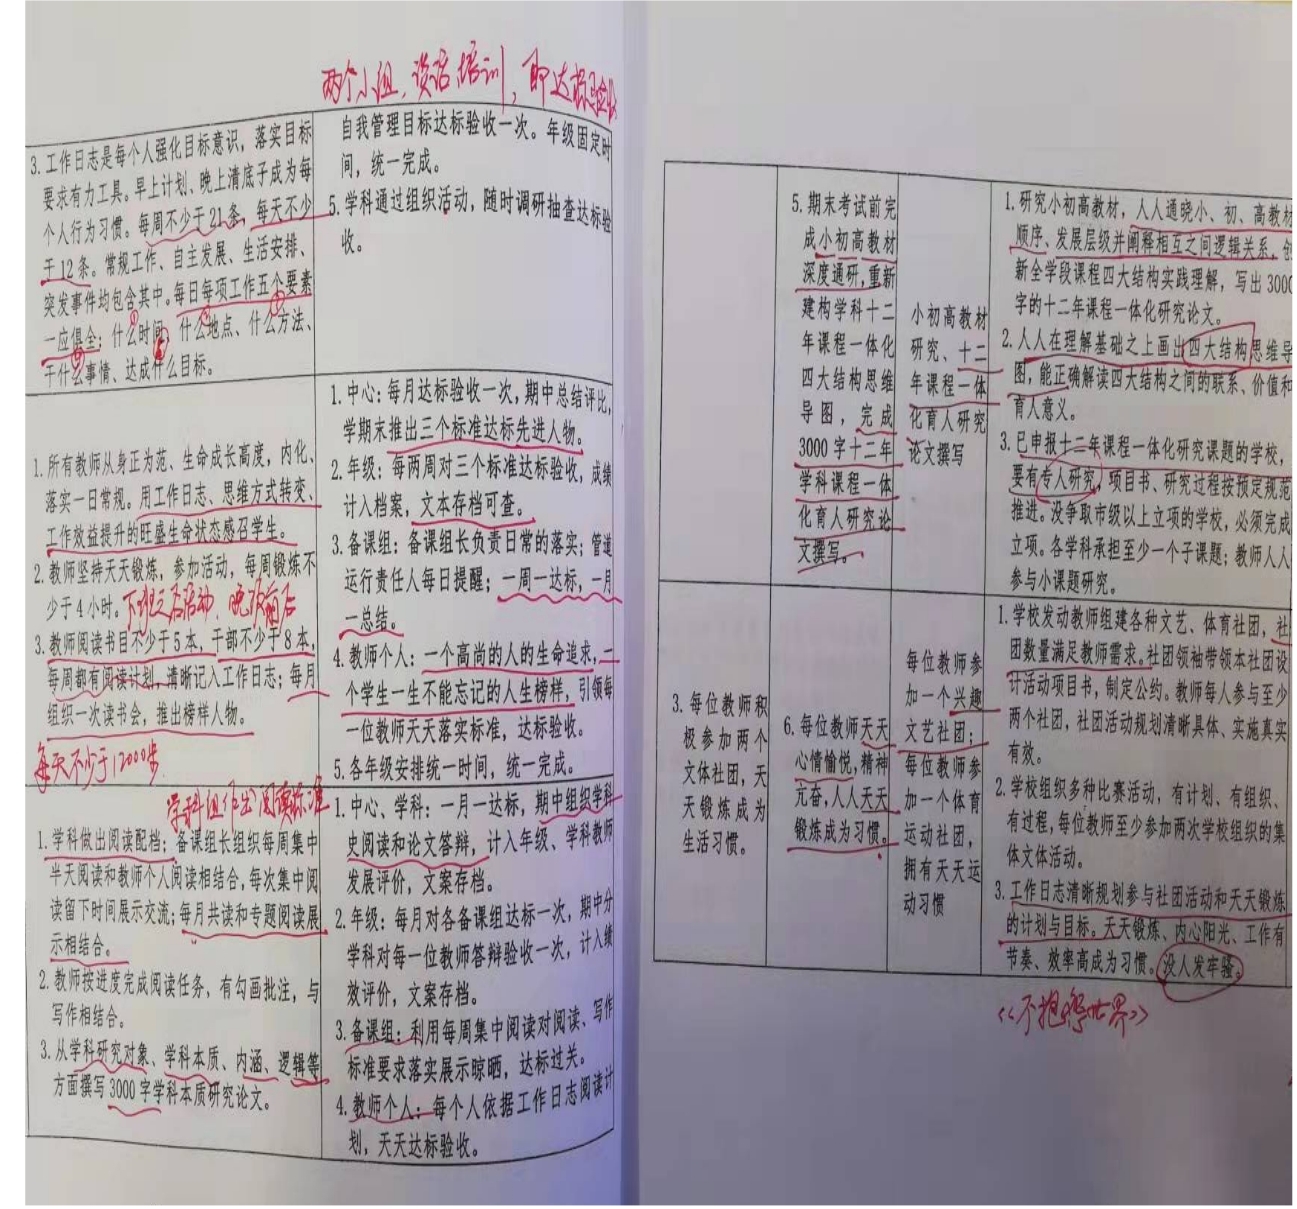 两个小组，谈话培训，即达标验收
3.工作日志是每个人强化目标意识，落实目标
要求有力工具。早上计划、晚上清底子成为每
个人行为习惯。每周不少于21条，每天不少
于12条。常规工作、自主发展、生活安排、
突发事件均包含其中。每日每项工作五个要素
一应俱全：什么时间、什么地点、什么方法、
干什么事情、达成什么目标。
自我管理目标达标验收一次。年级固定时
间，统一完成。
5.学科通过组织活动，随时调研抽查达标验
收。
1.所有教师从身正为范、生命成长高度，内化、
落实一日常规。用工作日志、思维方式转变、
工作效益提升的旺盛生命状态感召学生。
2.教师坚持天天锻炼，参加活动，每周锻炼不
少于4小时。下班之后活动、晚饭前后
3.教师阅读书目不少于5本，干部不少于8本，
每周都有阅读计划，清晰记入工作日志；每月
组织一次读书会，推出榜样人物。
每天不少于12000步
1.中心：每月达标验收一次，期中总结评比，
学期末推出三个标准达标先进人物。
2.年级：每两周对三个标准达标验收，成绩
计入档案，文本存档可查。
3.备课组：备课组长负责日常的落实；管道
运行责任人每日提醒；一周一达标，一月
一总结。
4.教师个人：一个高尚的人的生命追求，一
个学生一生不能忘记的人生榜样，引领每
一位教师天天落实标准，达标验收。
5.各年级安排统一时间，统一完成。
学科组作出阅读标准
1.学科做出阅读配档；备课组长组织每周集中
半天阅读和教师个人阅读相结合，每次集中阅
读留下时间展示交流；每月共读和专题阅读展
示相结合。
2.教师按进度完成阅读任务，有勾画批注，与
写作相结合。
3.从学科研究对象、学科本质、内涵、逻辑等
方面撰写3000字学科本质研究论文。
1.中心、学科：一月一达标，期中组织学科
史阅读和论文答辩，计入年级、学科教师
发展评价，文案存档。
2.年级：每月对各备课组达标一次，期中分
学科对每一位教师答辩验收一次，计入绩
效评价，文案存档。
3.备课组：利用每周集中阅读对阅读、写作
标准要求落实展示晾晒，达标过关。
4.教师个人：每个人依据工作日志阅读计
划，天天达标验收。
5.期末考试前完
成小初高教材
深度通研，重新
建构学科十二
年课程一体化
四大结构思维
导图，完成
3000字十二年
学科课程一体
化育人研究论
文撰写。
小初高教材
研究、十二
年课程一体
化育人研究
论文撰写
1.研究小初高教材，人人通晓小、初、高教材
顺序、发展层级并阐释相互之间逻辑关系，创
新全学段课程四大结构实践理解，写出3000
字的十二年课程一体化研究论文。
2.人人在理解基础之上画出四大结构思维导
图，能正确解读四大结构之间的联系、价值和
育人意义。
3.已申报十二年课程一体化研究课题的学校，
要有专人研究，项目书、研究过程按预定规范
推进。没争取市级以上立项的学校，必须完成
立项。各学科承担至少一个子课题；教师人人
参与小课题研究。
3.每位教师积
极参加两个
文体社团，天
天锻炼成为
生活习惯。
6.每位教师天天
心情愉悦，精神
亢奋，人人天天
锻炼成为习惯。
每位教师参
加一个兴趣
文艺社团；
每位教师参
加一个体育
运动社团，
拥有天天运
动习惯
1.学校发动教师组建各种文艺、体育社团，社
团数量满足教师需求。社团领袖带领本社团设
计活动项目书，制定公约。教师每人参与至少
两个社团，社团活动规划清晰具体、实施真实
有效。
2.学校组织多种比赛活动，有计划、有组织、
有过程，每位教师至少参加两次学校组织的集
体文体活动。
3.工作日志清晰规划参与社团活动和天天锻炼
的计划与目标。天天锻炼、内心阳光、工作有
节奏、效率高成为习惯。没人发牢骚。
《不抱怨世界》